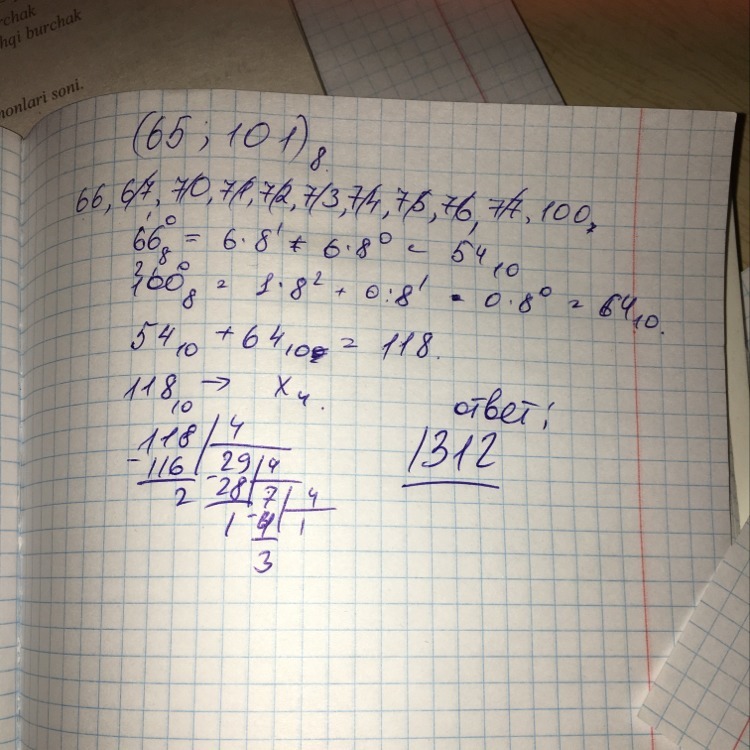 rchak
hqi burchak
nonlari soni.
(65 ; 101)₈
66, 67, 70, 71, 72, 73, 74, 75, 76, 77, 100,
6¹6⁰₈ = 6·8¹ + 6·8⁰ = 54₁₀
1²0¹0⁰₈ = 1·8² + 0·8¹ + 0·8⁰ = 64₁₀.
54₁₀ + 64₁₀ = 118.
118₁₀ → X₄.
ответ:
1312
118 | 4
-116 | 29 | 4
2 -28 | 7 | 4
1 -4 | 1
3